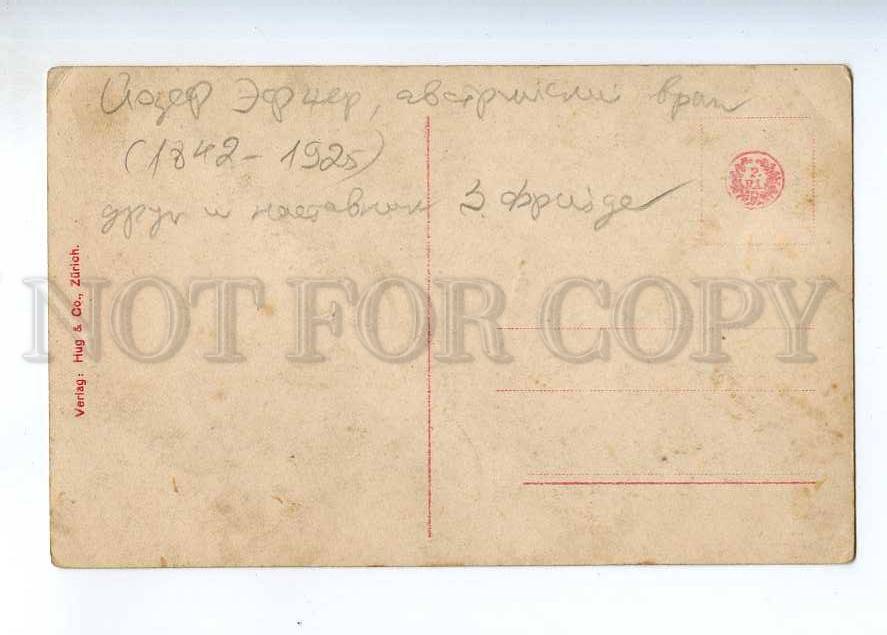 Йозеф Эфнер, австрийский врач
(1842 - 1925)
друг и наставник З. Фрейда
Verlag: Hug & Co., Zürich.
NOT FOR COPY